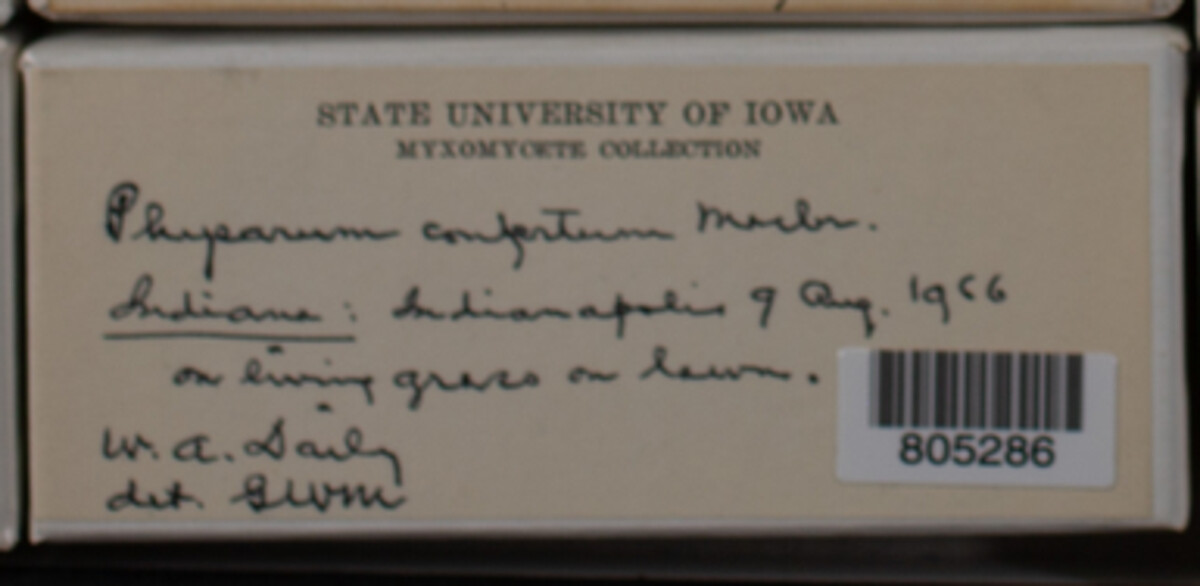 STATE UNIVERSITY OF IOWA
MYXOMYCETE COLLECTION
Physarum confertum Macbr.
Indiana: Indianapolis 9 Aug. 1966
on living grass on lawn.
W. A. Daily
det. GWM
805286